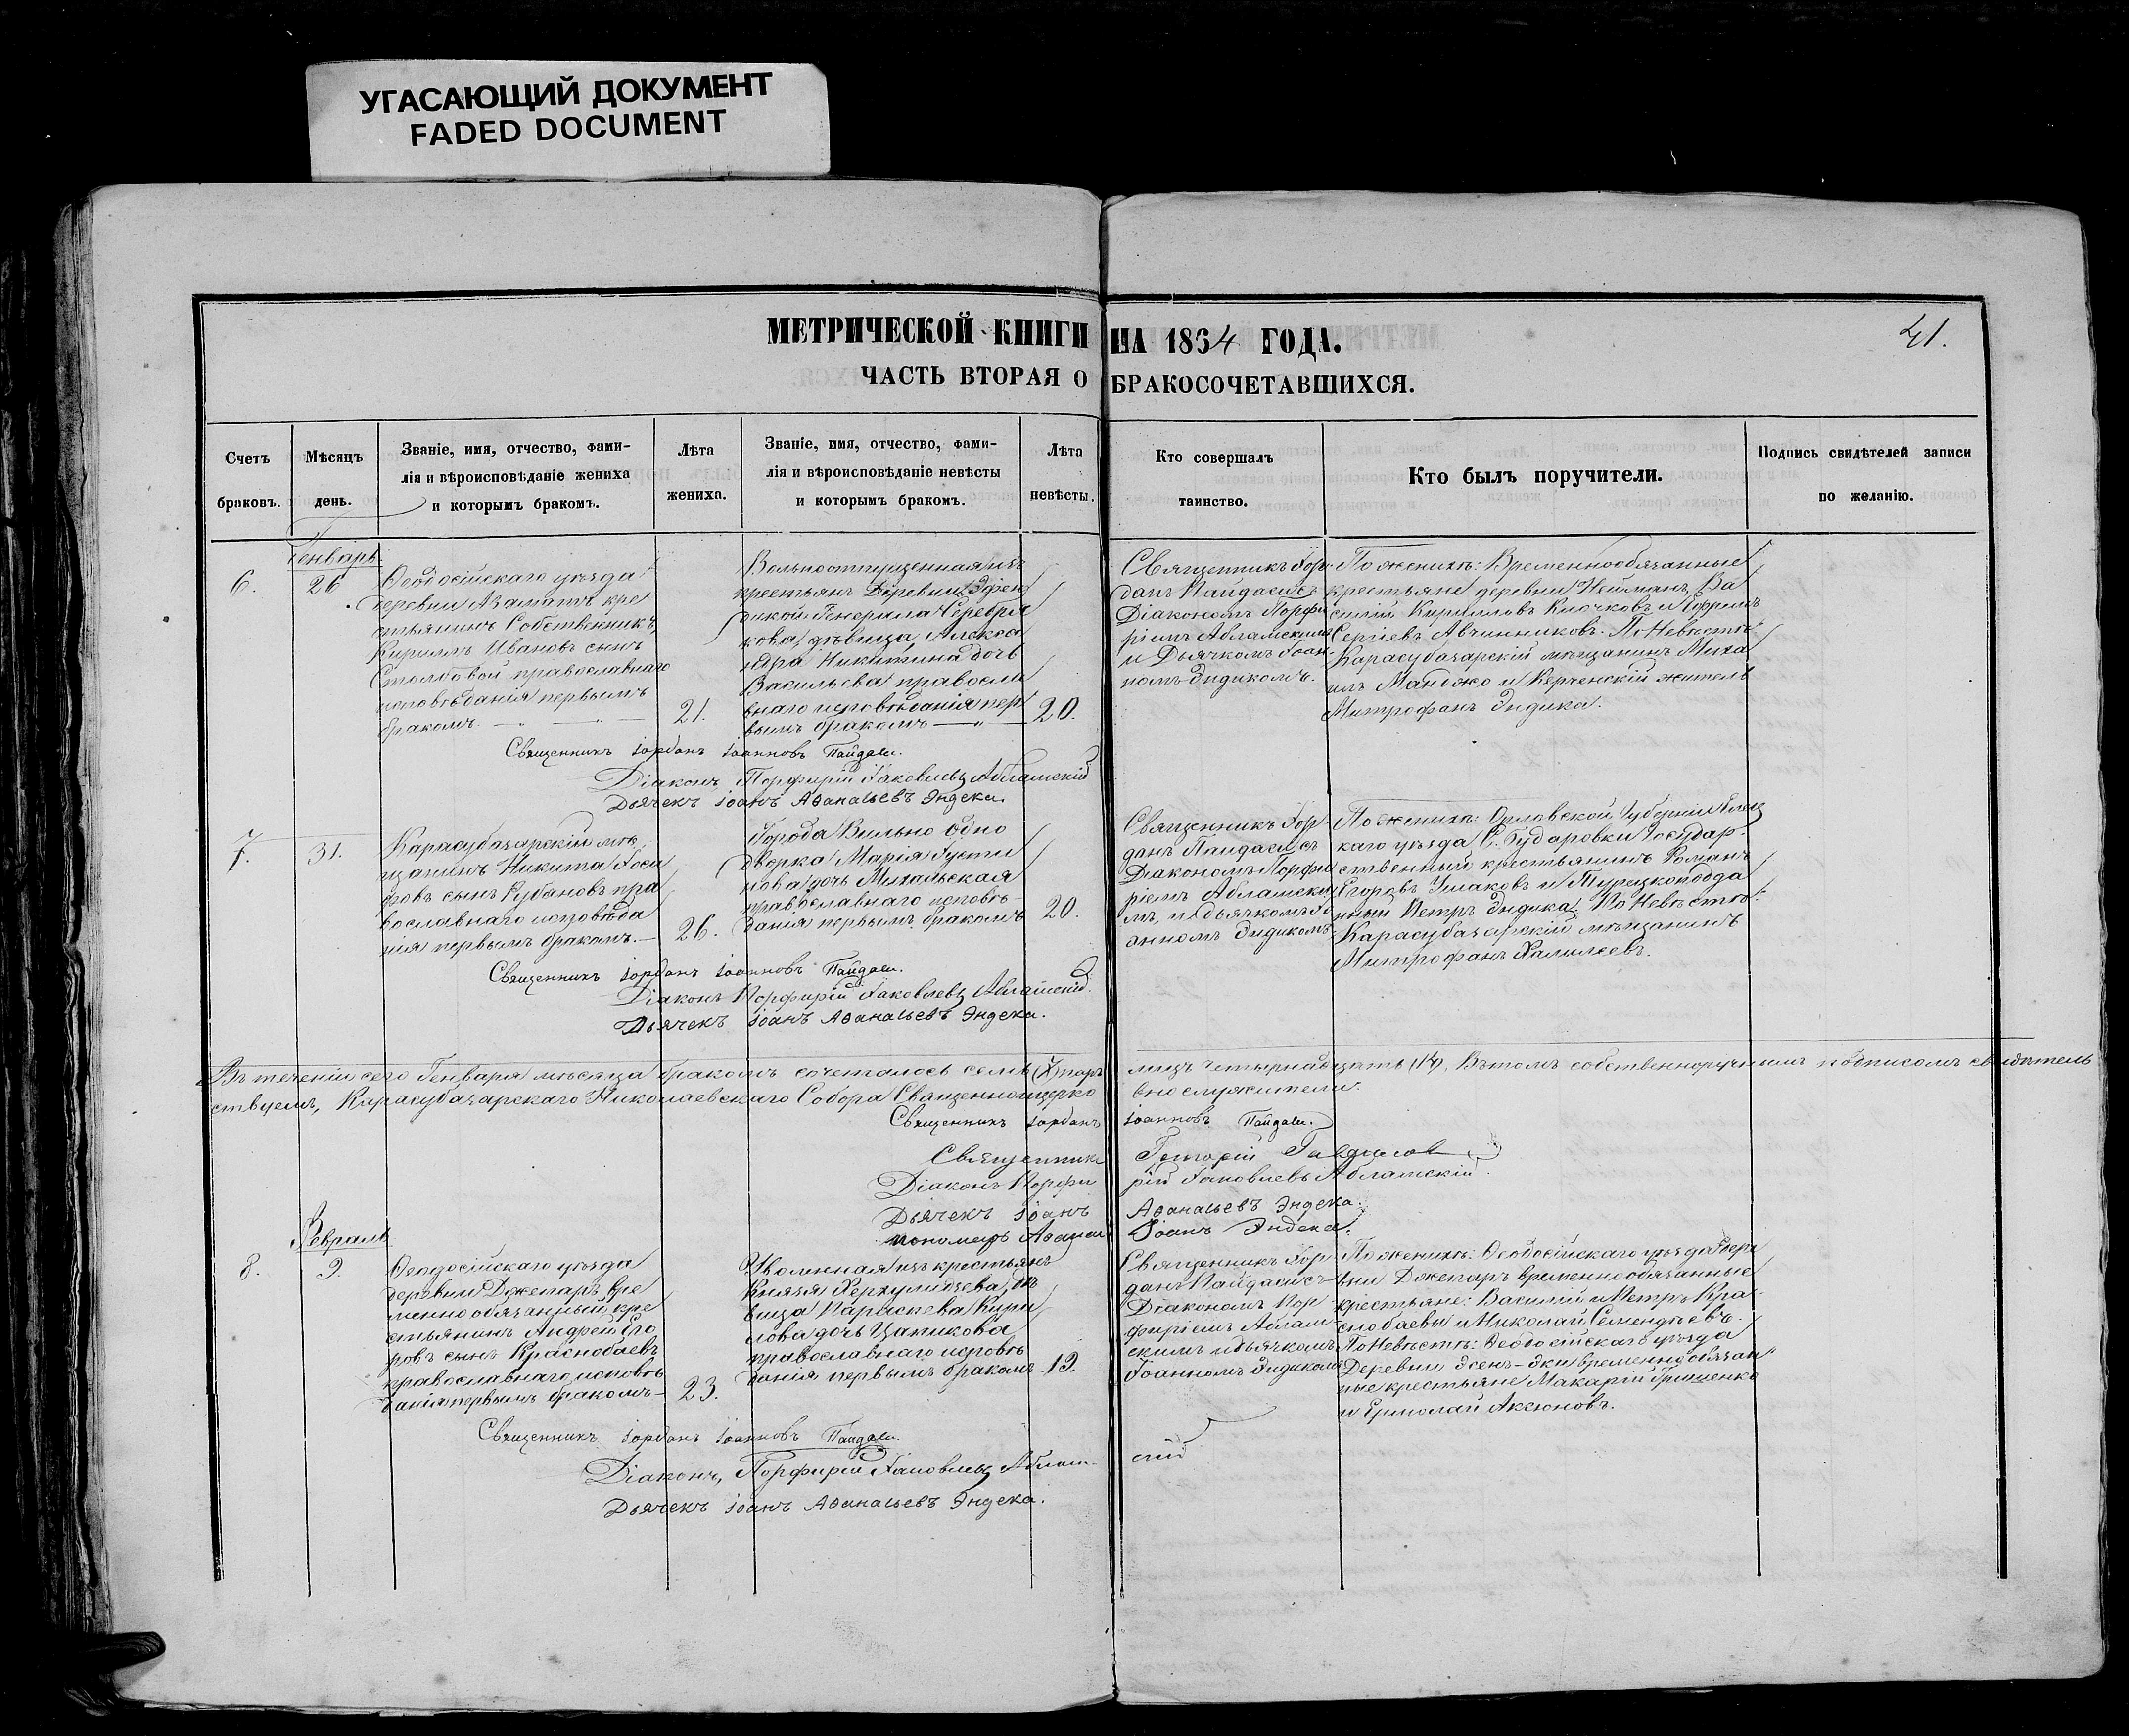 УГАСАЮЩИЙ ДОКУМЕНТ
FADED DOCUMENT
МЕТРИЧЕСКОЙ КНИГИ НА 1864 ГОДА.
41.
ЧАСТЬ ВТОРАЯ О БРАКОСОЧЕТАВШИХСЯ.
Счетъ
браковъ.
Мѣсяцъ
день.
Званіе, имя, отчество, фами-
лія и вѣроисповѣданіе жениха
и которымъ бракомъ.
Лѣта
жениха.
Званіе, имя, отчество, фами-
лія и вѣроисповѣданіе невѣсты
и которымъ бракомъ.
Лѣта
невѣсты.
Кто совершалъ
таинство.
Кто былъ поручители.
Подпись свидѣтелей записи
по желанію.
Генварь
6.
26
Ѳеодосійскаго уѣзда
деревни Азаматъ кре
стьянинъ Собственникъ,
Кириллъ Ивановъ сынъ
Столбовой православнаго
исповѣданія первымъ
бракомъ
21.
Вольноотпущенная изъ
крестьянъ Деревни
Генерала Сребря
кова, дѣвица, Алекса
ндра Никитина дочь
Васильева православ
внаго исповѣданія пер
вымъ бракомъ
20.
Священникъ Іор
данъ Пайдасисъ
Діакономъ Порфи
ріемъ Абламскимъ
и Дьячкомъ Іоан
номъ Эндикомъ.
По женихѣ: Временнообязанные
крестьяне деревни Нейманъ, Ва
силій Кирилловъ Клочковъ и Ефремъ
Сергіевъ Авчинниковъ. По Невѣстѣ:
Карасубазарскій мѣщанинъ Миха
илъ Манджо и Керченскій житель
Митрофанъ Эндика.
Священникъ Іорданъ Іоанновъ Пайдаси.
Діаконъ Порфирій Іаковлевъ Абламскій
Дьячекъ Іоанъ Аѳанасьевъ Эндека.
7.
31.
Карасубазарскій мѣ
щанинъ Никита Іоси
фовъ сынъ Рубановъ пра
вославнаго исповѣда
нія первымъ бракомъ.
26.
Города Вильно одно
дворка Марія Іусти
нова дочь Михальская
православнаго исповѣ-
данія первымъ бракомъ
20.
Священникъ Іор
данъ Пайдасисъ
Діакономъ Порфи
ріемъ Абламски
мъ, и дьячкомъ Іо
анномъ Эндикомъ
По женихѣ: Орловской Губерніи Елец
каго уѣзда С. Бударовки Государ-
ственный крестьянинъ Романъ
Егоровъ Ушаковъ и Турецкоподда
нный Петръ Эндика. По Невѣстѣ:
Карасубазарскій мѣщанинъ
Митрофанъ Халилеевъ.
Священникъ Іорданъ Іоанновъ Пайдаси.
Діаконъ Порфирій Іаковлевъ Абламскій.
Дьячекъ Іоанъ Аѳанасьевъ Эндека.
Въ теченіи сего Генваря мѣсяца бракомъ сочеталось семь (7) паръ лицъ четырнадцать (14). Въ томъ собственноручнымъ подписомъ свидѣтель
ствуемъ, Карасубазарскаго Николаевскаго Собора Священноцерко вно служители.
Священникъ Іорданъ Іоанновъ Пайдаси.
Священникъ Григорій
Діаконъ Порфи рій Іаковлевъ Абламскій.
Дьячекъ Іоанъ Аѳанасьевъ Эндека.
Пономарь Іоанъ Эндека.
Февраль
8.
9.
Ѳеодосійскаго уѣзда
деревни Джепаръ, вре
менно обязанный кре
стьянинъ Андрей Его
ровъ сынъ Краснобаевъ
православнаго исповѣ
данія первымъ бракомъ
23.
Уволенная изъ крестьянъ
Князя Херхулидзева, дѣ
вица Параскева Кири
лова дочь Цапикова
православнаго исповѣ
данія первымъ бракомъ
19.
Священникъ Іор
данъ Пайдасисъ
Діакономъ Пор
фиріемъ Аблам
скимъ и дьячкомъ
Іоанномъ Эндикомъ
По женихѣ: Ѳеодосійскаго уѣзда Дере
вни Джепаръ временнообязанные
крестьяне: Василій и Петръ Кра-
снобаевы и Николай Семендѣевъ.
По Невѣстѣ: Ѳеодосійскаго уѣзда
Деревни Эсень-Эки временно обязан
ные крестьяне Макарій Грищенко
и Ермолай Аксюновъ.
Священникъ Іорданъ Іоанновъ Пайдаси.
Діаконъ, Порфирій Іаковлевъ Аблам- скій
Дьячекъ Іоанъ Аѳанасьевъ Эндека.